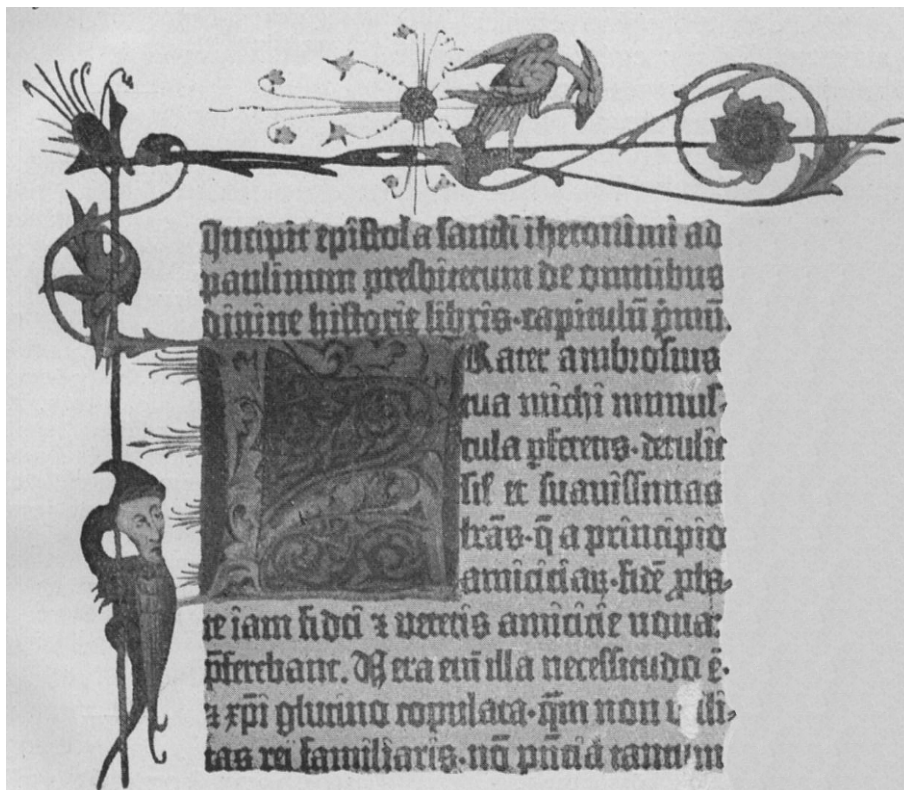 Incipit epistola sancti iheronimi ad
paulinum presbiterum de omnibus
divine historie libris·capitulū p̄mū.
FRater ambrosius
tua michi munus-
cula p̄ferens·detulit
sil̄ et suavissimas
lr̄as·q̄ a principio
amiciciaꝝ·fidē ꝓba-
te iam fidei ⁊ veteris amicicie nova:
p̄ferebant. Vera em̄ illa necessitudo ē·
⁊ xp̄i glutino copulata·qm̄ non li-
tas rei familiaris·nō pn̄cia tantum